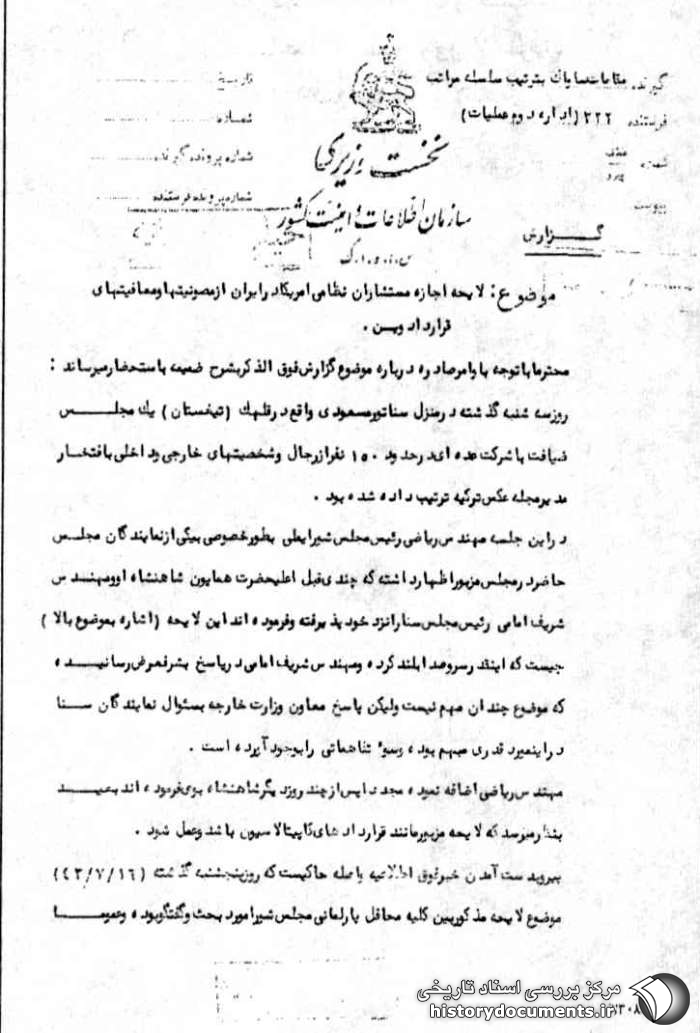 گیرنده مقامات ساواک بترتیب سلسله مراتب
فرستنده ۲۲۲ (اداره دوم عملیات)
شماره
پیوست
تاریخ
شماره
شماره پرونده گیرنده
شماره پرونده فرستنده
نخست وزیری
سازمان اطلاعات و امنیت کشور
س.ا.و.ا.ک
گزارش
موضوع: لایحه اجازه مستشاران نظامی امریکا در ایران از مصونیتها و معافیتهای
قرارداد وین .
محترما با توجه باوامر صادره درباره موضوع گزارش فوق الذکر بشرح ضمیمه باستحضار میرساند :
روز سه شنبه گذشته در منزل سناتور مسعودی واقع در قلهک (تیغستان) یک مجلس
ضیافت با شرکت عده ای در حدود ۱۵۰ نفر از رجال و شخصیتهای خارجی و داخلی بافتخار
مدیر مجله عکس ترکیه ترتیب داده شده بود .
در این جلسه مهندس ریاضی رئیس مجلس شورایملی بطور خصوصی بیکی از نمایندگان مجلس
حاضر در مجلس مزبور اظهار داشته که چندی قبل اعلیحضرت همایون شاهنشاه او و مهندس
شریف امامی رئیس مجلس سنا را نزد خود پذیرفته و فرموده اند این لایحه (اشاره بموضوع بالا)
چیست که اینقدر سروصدا بلند کرده و مهندس شریف امامی در پاسخ بشرفعرض رسانیده
که موضوع چندان مهم نیست ولیکن پاسخ معاون وزارت خارجه بسئوال نمایندگان سنا
در اینمورد قدری مبهم بوده و سوء تفاهماتی را بوجود آورده است .
مهندس ریاضی اضافه نموده مجددا پس از چند روز دیگر شاهنشاه بوی فرموده اند بعید
بنظر میرسد که لایحه مزبور مانند قراردادهای کاپیتالاسیون باشد و عمل شود .
بپیرو بدست آمدن خبر فوق اطلاعیه واصله حاکیست که روز پنجشنبه گذشته (۴۳/۷/۱۶)
موضوع لایحه مذکور بین کلیه محافل پارلمانی مجلس شورا مورد بحث و گفتگو بوده و عموما
مرکز بررسی اسناد تاریخی
historydocuments.ir